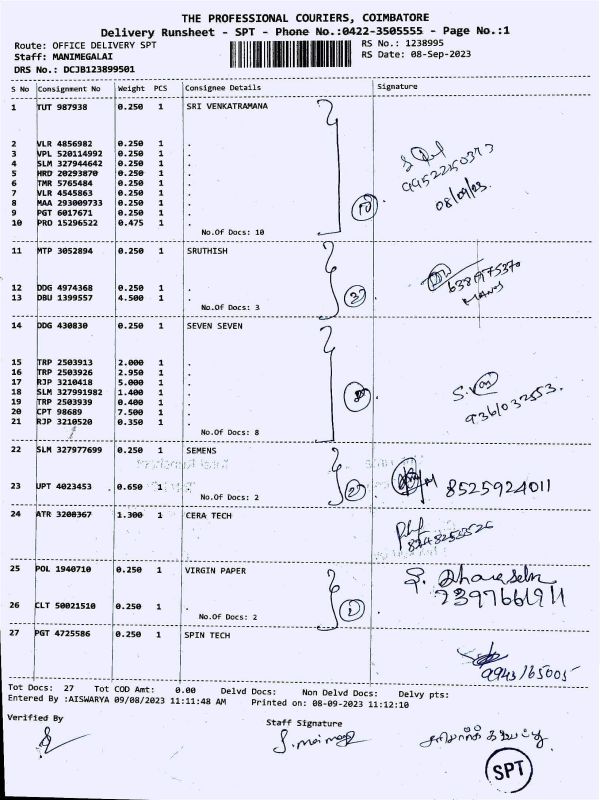 THE PROFESSIONAL COURIERS, COIMBATORE
Delivery Runsheet - SPT - Phone No.:0422-3505555 - Page No.:1
Route: OFFICE DELIVERY SPT RS No.: 1238995
Staff: MANIMEGALAI RS Date: 08-Sep-2023
DRS No.: DCJB123899501
S No Consignment No Weight PCS Consignee Details Signature
1 TUT 987938 0.250 1 SRI VENKATRAMANA
2 VLR 4856982 0.250 1 .
3 VPL 520114992 0.250 1 .
4 SLM 327944642 0.250 1 .
5 HRD 20293870 0.250 1 .
6 TMR 5765484 0.250 1 .
7 VLR 4545863 0.250 1 .
8 MAA 293009733 0.250 1 .
9 PGT 6017671 0.250 1 .
10 PRO 15296522 0.475 1 .
No.Of Docs: 10
9952250373
08/09/23.
11 MTP 3052894 0.250 1 SRUTHISH
12 DDG 4974368 0.250 1 .
13 DBU 1399557 4.500 1 .
No.Of Docs: 3
3
14 DDG 430830 0.250 1 SEVEN SEVEN
15 TRP 2503913 2.000 1 .
16 TRP 2503926 2.950 1 .
17 RJP 3210418 5.000 1 .
18 SLM 327991982 1.400 1 .
19 TRP 2503939 0.400 1 .
20 CPT 98689 7.500 1 .
21 RJP 3210520 0.350 1 .
No.Of Docs: 8
9361032553.
22 SLM 327977699 0.250 1 SEMENS
23 UPT 4023453 0.650 1 .
No.Of Docs: 2
2
8525924011
24 ATR 3208367 1.300 1 CERA TECH
8248253526
25 POL 1940710 0.250 1 VIRGIN PAPER
26 CLT 50021510 0.250 1 .
No.Of Docs: 2
7397661911
27 PGT 4725586 0.250 1 SPIN TECH
9943165005
Tot Docs: 27 Tot COD Amt: 0.00 Delvd Docs: Non Delvd Docs: Delvy pts:
Entered By :AISWARYA 09/08/2023 11:11:48 AM Printed on: 08-09-2023 11:12:10
Verified By Staff Signature
SPT